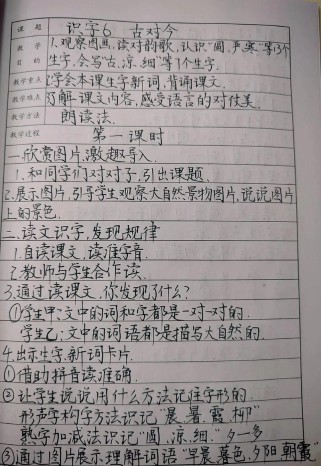 课题 识字6 古对今
教学 1.观察图画,读对韵歌,认识"圆、严寒"等13个
目的 生字,会写"古、凉、细"等7个生字.
教学重点 2.学会本课生字新词,背诵课文.
教学难点 3.了解课文内容,感受语言的对仗美.
教学方法 朗读法.
教学过程 第一课时
一、欣赏图片,激趣导入.
1.和同学们对对子,引出课题.
2.展示图片,引导学生观察大自然景物图片,说说图片
上的景色.
二、读文识字,发现规律
1.自读课文,读准字音.
2.教师与学生合作读.
3.通过读课文,你发现了什么?
①学生甲:文中的词和字都是一对一对的.
学生乙:文中的词语都是描写大自然的.
4.出示生字,新词卡片.
①借助拼音读准确.
②让学生说说用什么方法记住字形的.
形声字构字方法识记"晨、暑、霞、柳"
熟字加减法识记"圆、凉、细." 夕—多
③通过图片展示理解词语"早晨、暮色、夕阳、朝霞"